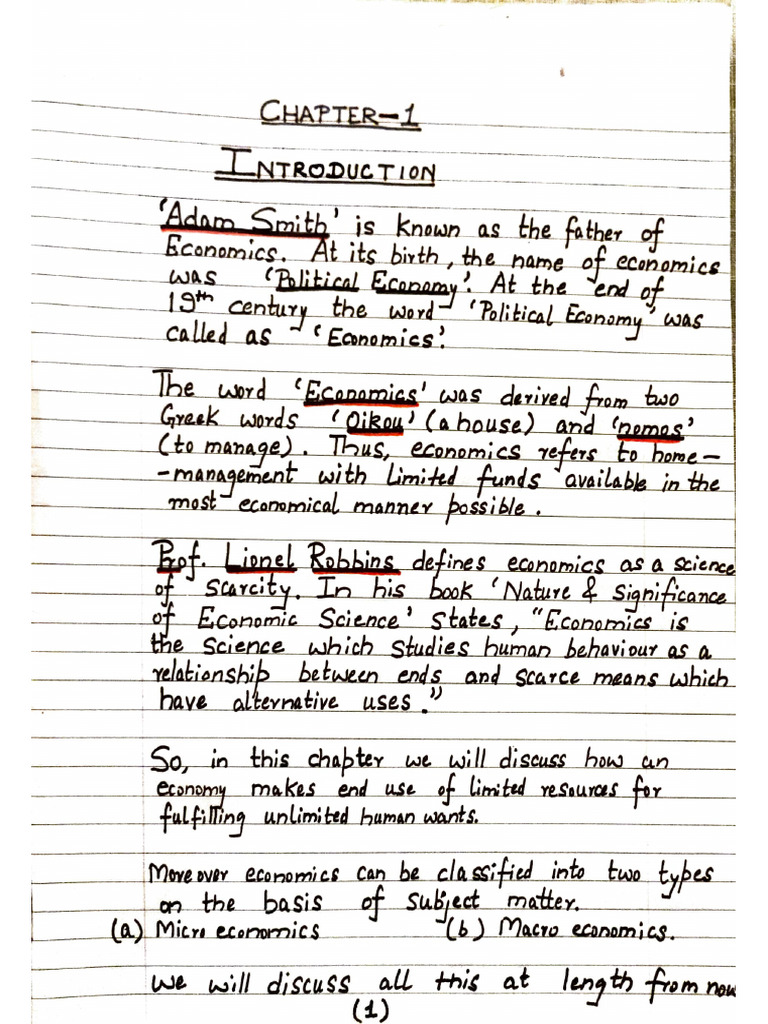 CHAPTER-1
INTRODUCTION
'Adam Smith' is known as the father of
Economics. At its birth, the name of economics
was 'Political Economy'. At the end of
19th century the word - 'Political Economy" was
called as - 'Economics'.
The word 'Economics' was derived from two
Greek words 'Oikou' (a house) and 'nomos'
(to manage). Thus, economics refers to home-
-management with limited funds available in the
most economical manner possible.
Prof. Lionel Robbins defines economics as a science
of scarcity. In his book 'Nature & Significance
of Economic Science' states, "Economics is
the science which studies human behaviour as a
relationship between ends and scarce means which
have alternative uses."
So, in this chapter we will discuss how an
economy makes end use of limited resources for
fulfilling unlimited human wants.
Moreover economics can be classified into two types
on the basis of subject matter.
(a) Micro economics (b) Macro economics.
we will discuss all this at length from now
(1)